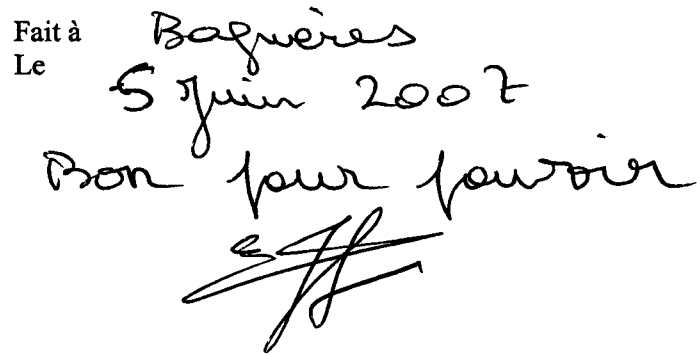 Fait à Bagnères
Le 5 juin 2007
Bon pour pouvoir